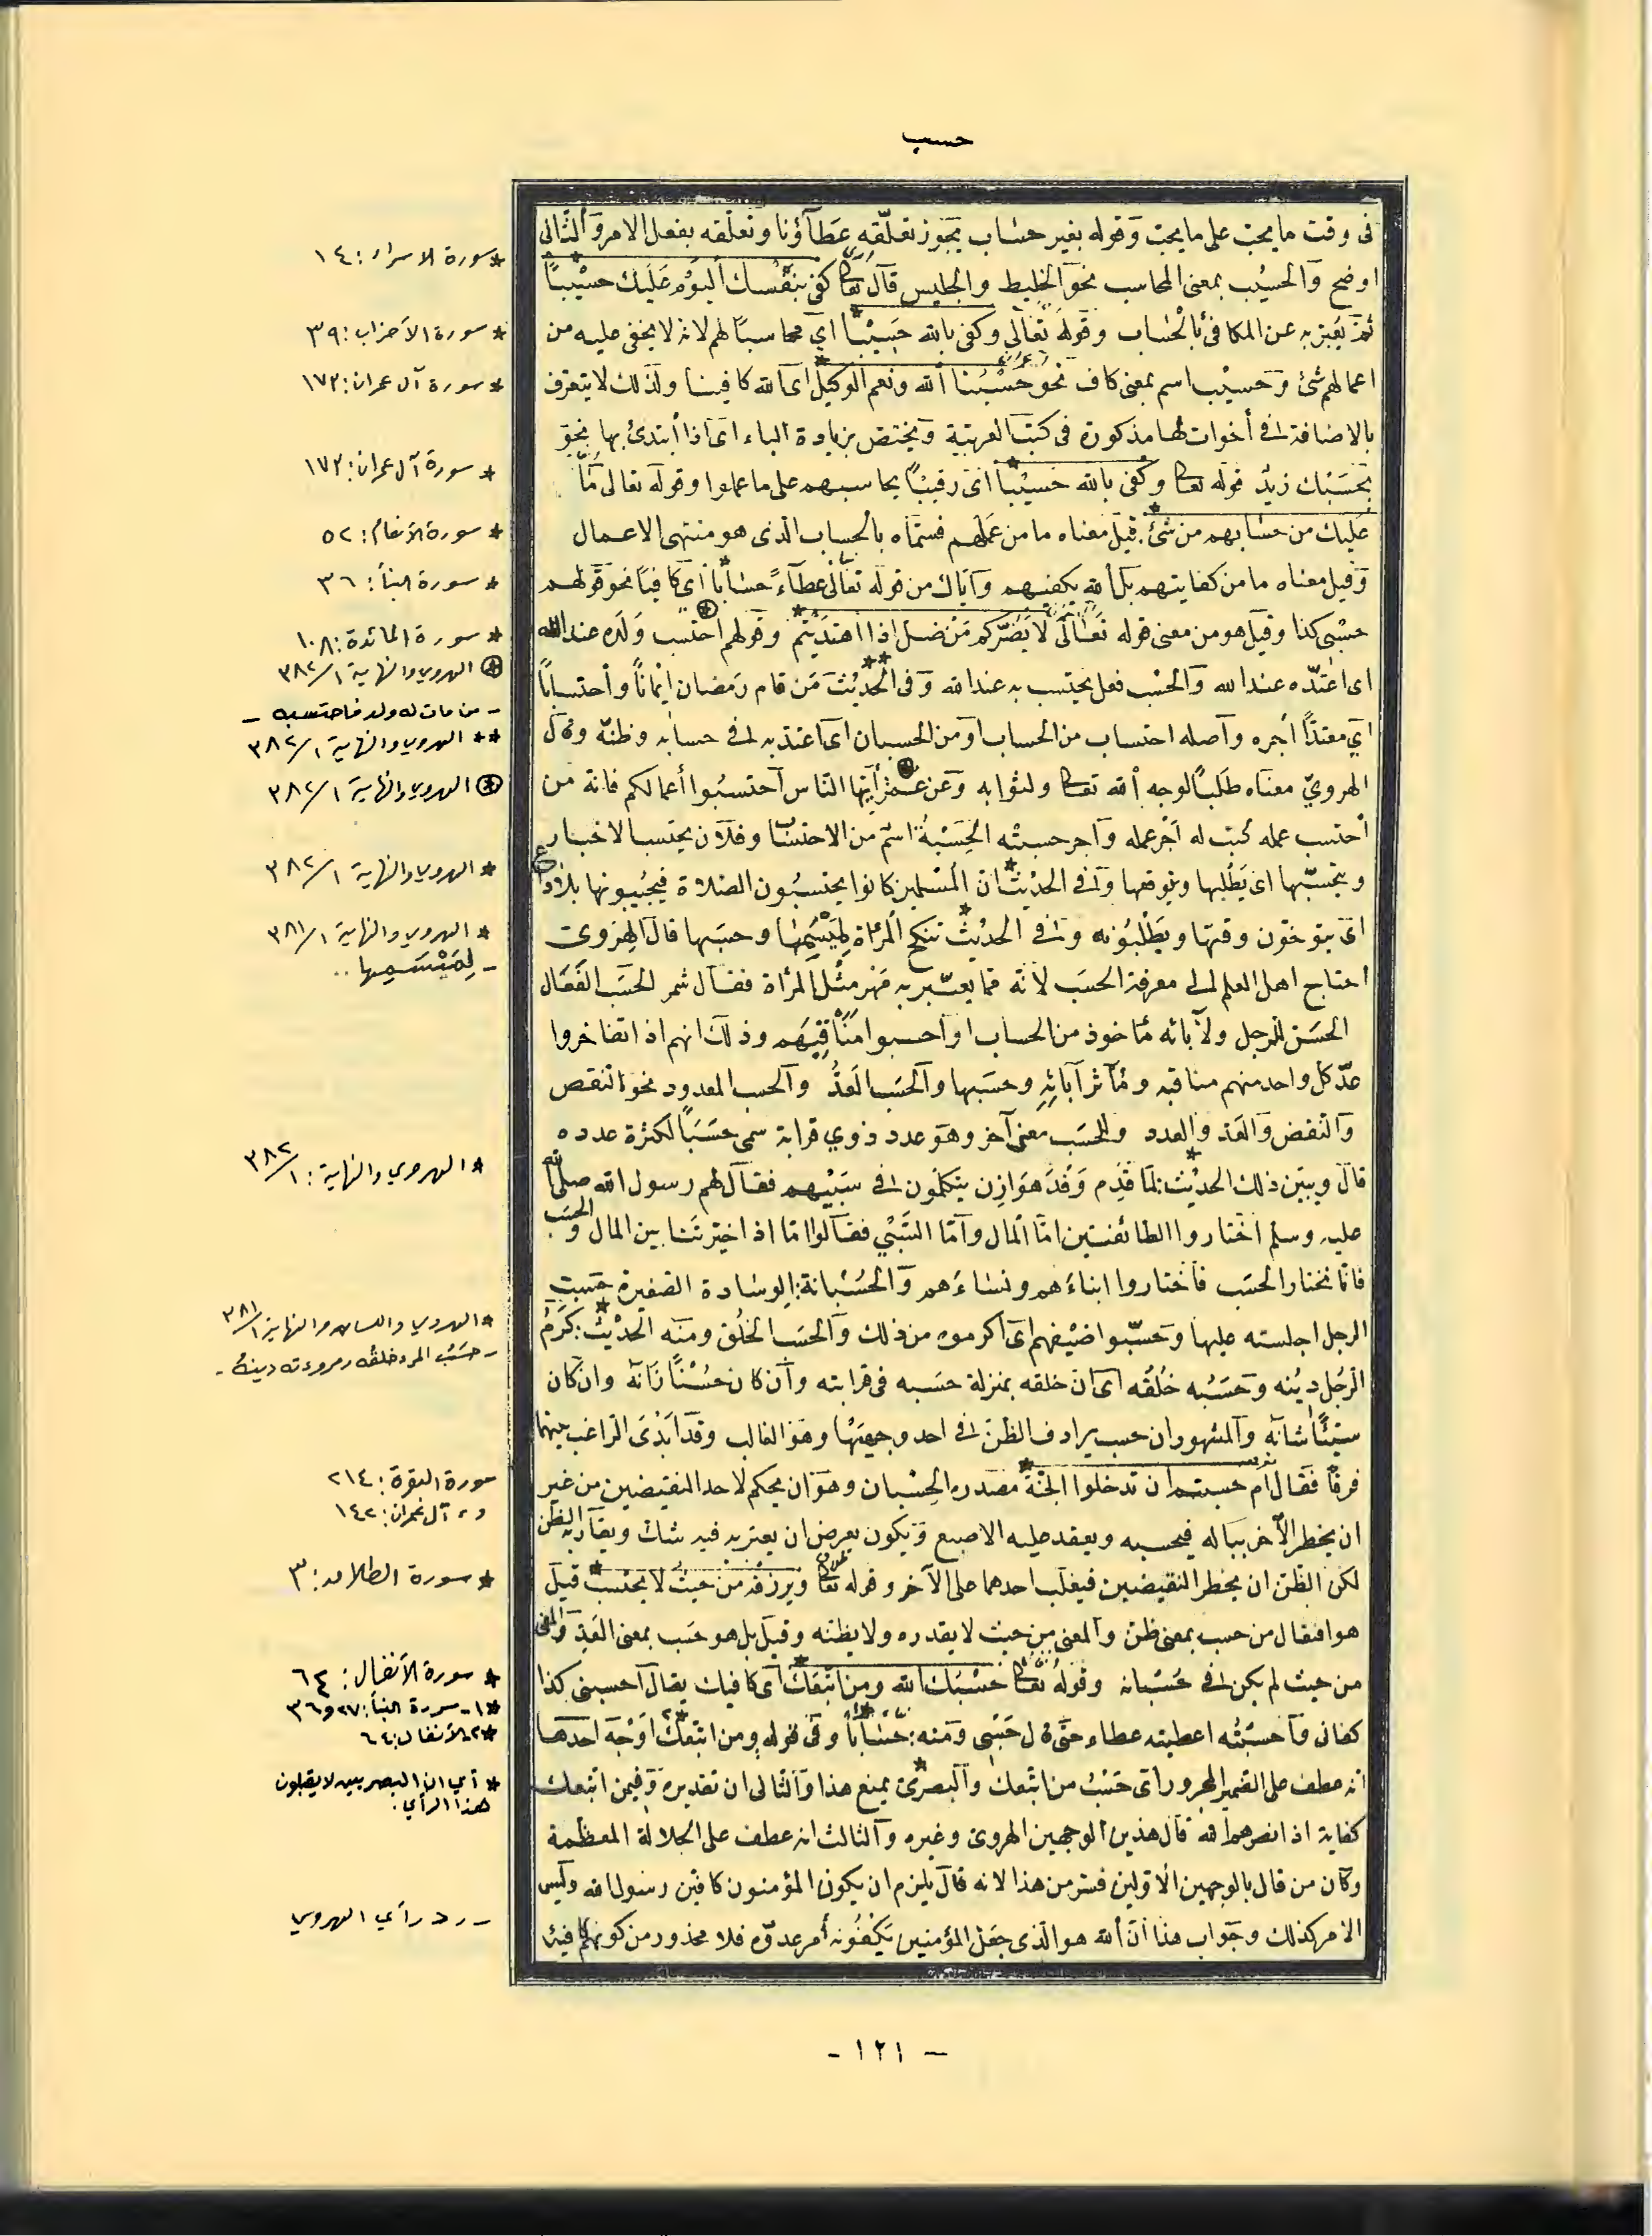 حسب
فى وقت ما يجب على ما يجب وقوله بغير حساب يجوز تعلقه عطاؤنا وتعلقه بفعل الامر والثانى
اوضح والحسيب بمعنى المحاسب نحو الخليط والجليس قال تعا كفى بنفسك اليوم عليك حسيبا
ثم يعبر به عن المكافئ بالحساب وقوله تعالى وكفى بالله حسيبا اى محاسبا لهم لانه لا يخفى عليه من
اعمالهم شئ وحسيب اسم بمعنى كاف نحو حسبنا الله ونعم الوكيل اى الله كافينا ولذلك لا يتعرف
بالاضافة فى أخوات لها مذكورة فى كتب العربية ويختص بزيادة الباء اى اذا أبتدئ بها نحو
بحسبك زيد قوله تعا وكفى بالله حسيبا اى رقيبا يحاسبهم على ما عملوا وقوله تعالى ما
عليك من حسابهم من شئ قيل معناه ما من عملهم فسماه بالحساب الذى هو منتهى الاعمال
وقيل معناه ما من كفايتهم بل الله يكفيهم واياك من قوله تعالى عطاء حسابا اى كافيا نحو قولهم
حسبى كذا وقيل هو من معنى قوله تعالى لا يضركم من ضل اذا اهتديتم وقولهم احتسب ولده عند الله
اى اعتده عند الله والحسب فعل يحتسب به عند الله وفى الحديث من قام رمضان ايمانا وأحتسابا
اي معتدا أجره وأصله احتساب من الحساب او من الحسبان اى اعتد به فى حسابه وظنه وقال
الهروي معناه طلبا لوجه الله تعا ولثوابه وعن عمر أيها الناس احتسبوا أعمالكم فانه من
أحتسب عمله كتب له اجر عمله واجر حسبته الحسبة اسم من الاحتساب وفلان يحتسب الاخبار
ويتحسبها اى يطلبها ويتوقعها وفى الحديث ان المسلمين كانوا يحتسبون الصلاة فيجيبونها بلا داع
اى يتوخون وقتها ويطلبونه وفى الحديث تنكح المرأة لميسمها وحسبها قال الهروى
احتاج اهل العلم الى معرفة الحسب لانه مما يعتبر به مهر مثل المرأة فقال شمر الحسب الفعال
الحسن للرجل ولآبائه مأخوذ من الحساب اذا حسبوا مناقبهم وذلك انهم اذا تفاخروا
عد كل واحد منهم مناقبه ومآثر آبائه وحسبها والحسب العد والحسب المعدود نحو النقص
والنقض والعد والعدد وللحسب معنى آخر وهو عدد ذوي قرابة سمى حسبا لكثرة عدده
قال ويبين ذلك الحديث لما قدم وفد هوازن يتكلمون فى سبيهم فقال لهم رسول الله صلى الله
عليه وسلم اختاروا الطائفتين اما المال واما السبي فقالوا اما اذ اخيرتنا بين المال والحسب
فانا نختار الحسب فاختاروا ابناءهم ونساءهم والحسبانة الوسادة الصغيرة حسبت
الرجل اجلسته عليها وحسبوا ضيفهم اى اكرموه من ذلك والحسب الخلق ومنه الحديث كرم
الرجل دينه وحسبه خلقه اى ان خلقه بمنزلة حسبه فى قرابته وان كان حسنا زانه وان كان
سيئا شانه والمشهور ان حسب يرادف الظن فى احد وجهيها وهو الغالب وقد أبدى الراغب بينهما
فرقا فقال ام حسبتم ان تدخلوا الجنة مصدره الحسبان وهو ان يحكم لاحد النقيضين من غير
ان يخطر الآخر بباله فيحسبه ويعقد عليه الاصبع ويكون بعرض ان يعتريه فيه شك ويقارب الظن
لكن الظن ان يخطر النقيضين فيغلب احدهما على الآخر وقوله تعا ويرزقه من حيث لا يحتسب قيل
هو افتعال من حسب بمعنى ظن والمعنى من حيث لا يقدره ولا يظنه وقيل بل هو حسب بمعنى العد والمعنى
من حيث لم يكن فى حسبانه وقوله تعا حسبك الله ومن اتبعك اى كافيك يقال أحسبنى كذا
كفانى واحسبته اعطيته عطاء حتى قال حسبى ومنه حسابا وفى قوله ومن اتبعك اوجه احدها
انه عطف على الضمير المجرور اى حسب من اتبعك والبصرى يمنع هذا والثانى ان تقديره وفيمن اتبعك
كفاية اذا نصرهم الله قال هذين الوجهين الهروى وغيره والثالث انه عطف على الجلالة المعظمة
وكان من قال بالوجهين الاولين فسر من هذا لانه قال يلزم ان يكون المؤمنون كافين رسول الله وليس
الامر كذلك وجواب هذا أن الله هو الذى جعل المؤمنين يكفونه أمر عدوه فلا محذور من كونهم كافيه
* سورة الاسراء: ١٤
* سورة الأحزاب: ٣٩
* سورة آل عمران: ١٧٣
* سورة آل عمران: ١٧٣
* سورة الأنعام: ٥٢
* سورة النبأ: ٣٦
* سورة المائدة: ١٠٨
الهروي والنهاية ٣٨٢/١
- من مات له ولد فاحتسبه -
** الهروي والنهاية ٣٨٢/١
الهروي والنهاية ٣٨٢/١
* الهروي والنهاية ٣٨٢/١
* الهروي والنهاية ٣٨١/١
- لميسمها ..
* الهروي والنهاية: ٣٨٢/١
* الهروي واللسان والنهاية ٣٨١/١
- حسب المرء خلقه ومروءته دينه -
سورة البقرة: ٢١٤
و آل عمران: ١٤٢
* سورة الطلاق: ٣
* سورة الأنفال: ٦٤
*١- سورة النبأ: ٢٧ و٣٦
*٢- الأنفال: ٦٤
* أي ان البصريين لا يقبلون
هذا الرأي.
- رد رأي الهروي
- ١٢١ -